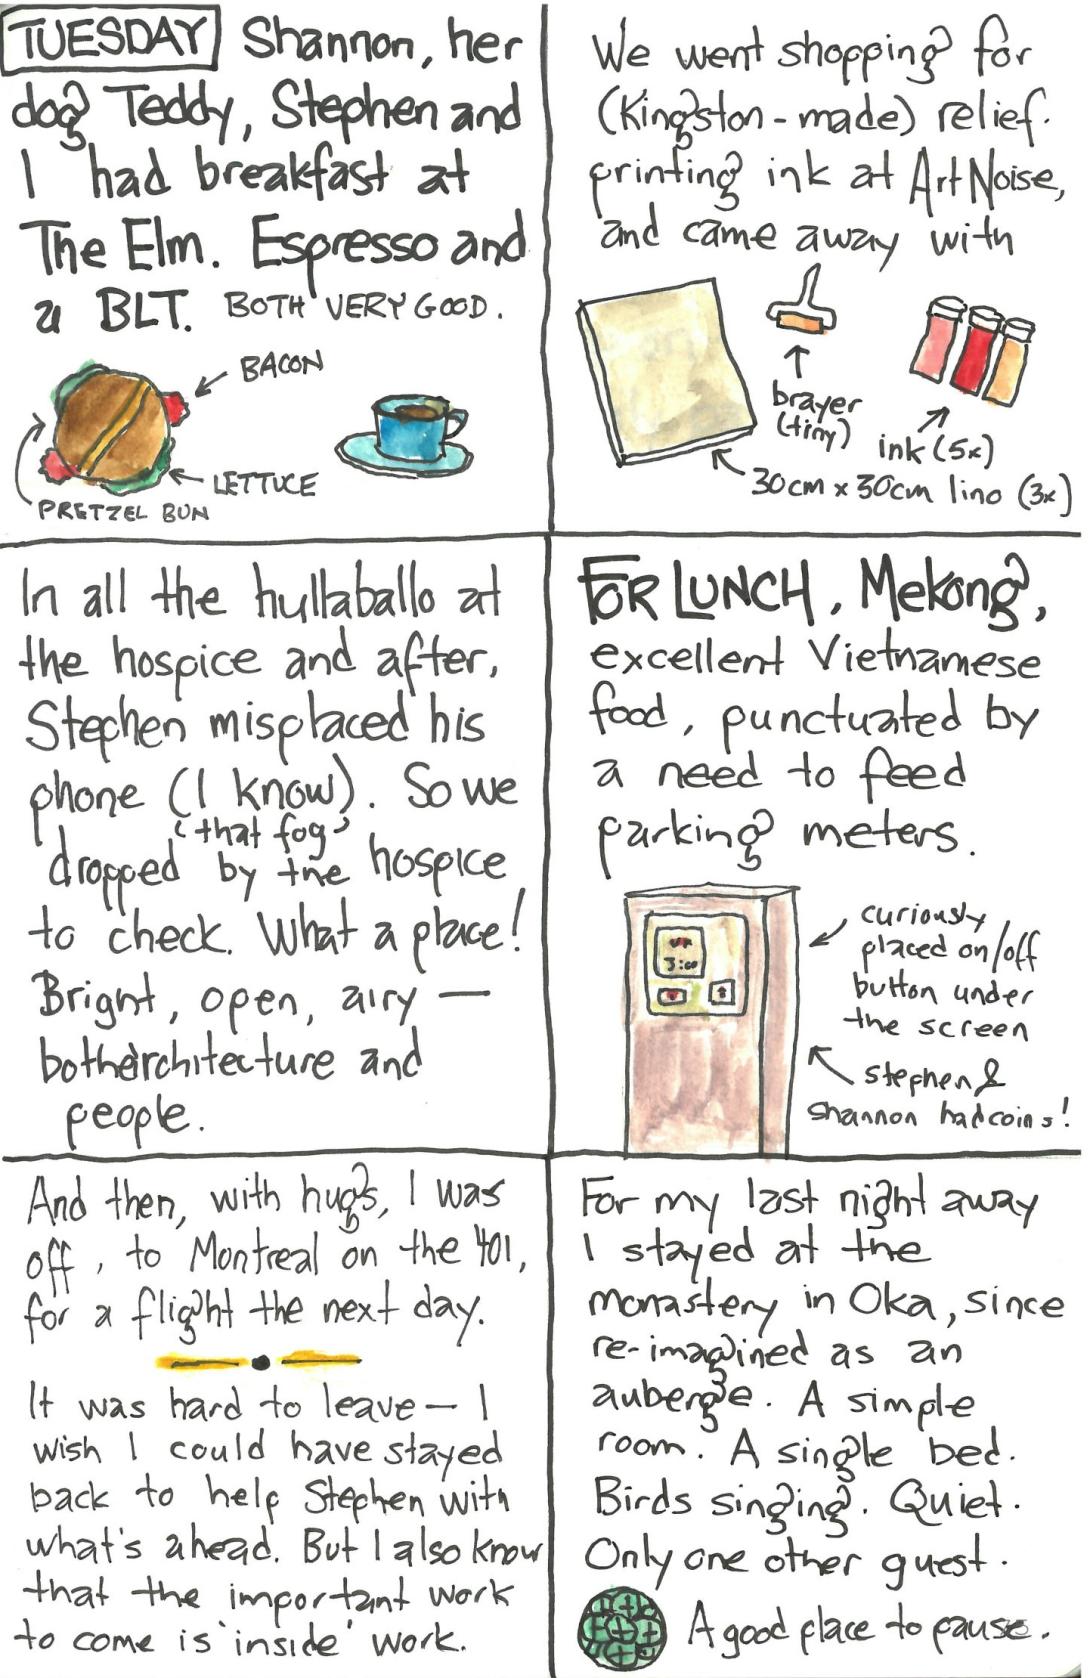 TUESDAY Shannon, her
dog Teddy, Stephen and
I had breakfast at
The Elm. Espresso and
a BLT. BOTH VERY GOOD.
BACON
LETTUCE
PRETZEL BUN
We went shopping for
(Kingston-made) relief
printing ink at Art Noise,
and came away with
brayer
(tiny)
ink (5x)
30cm x 30cm lino (3x)
In all the hullaballo at
the hospice and after,
Stephen misplaced his
phone (I know). So we
(that fog)
dropped by the hospice
to check. What a place!
Bright, open, airy —
both architecture and
people.
FOR LUNCH, Mekong,
excellent Vietnamese
food, punctuated by
a need to feed
parking meters.
3:00
curiously
placed on/off
button under
the screen
stephen &
shannon had coins!
And then, with hugs, I was
off, to Montreal on the 401,
for a flight the next day.
It was hard to leave — I
wish I could have stayed
back to help Stephen with
what's ahead. But I also know
that the important work
to come is 'inside' work.
For my last night away
I stayed at the
monastery in Oka, since
re-imagined as an
auberge. A simple
room. A single bed.
Birds singing. Quiet.
Only one other guest.
A good place to pause.